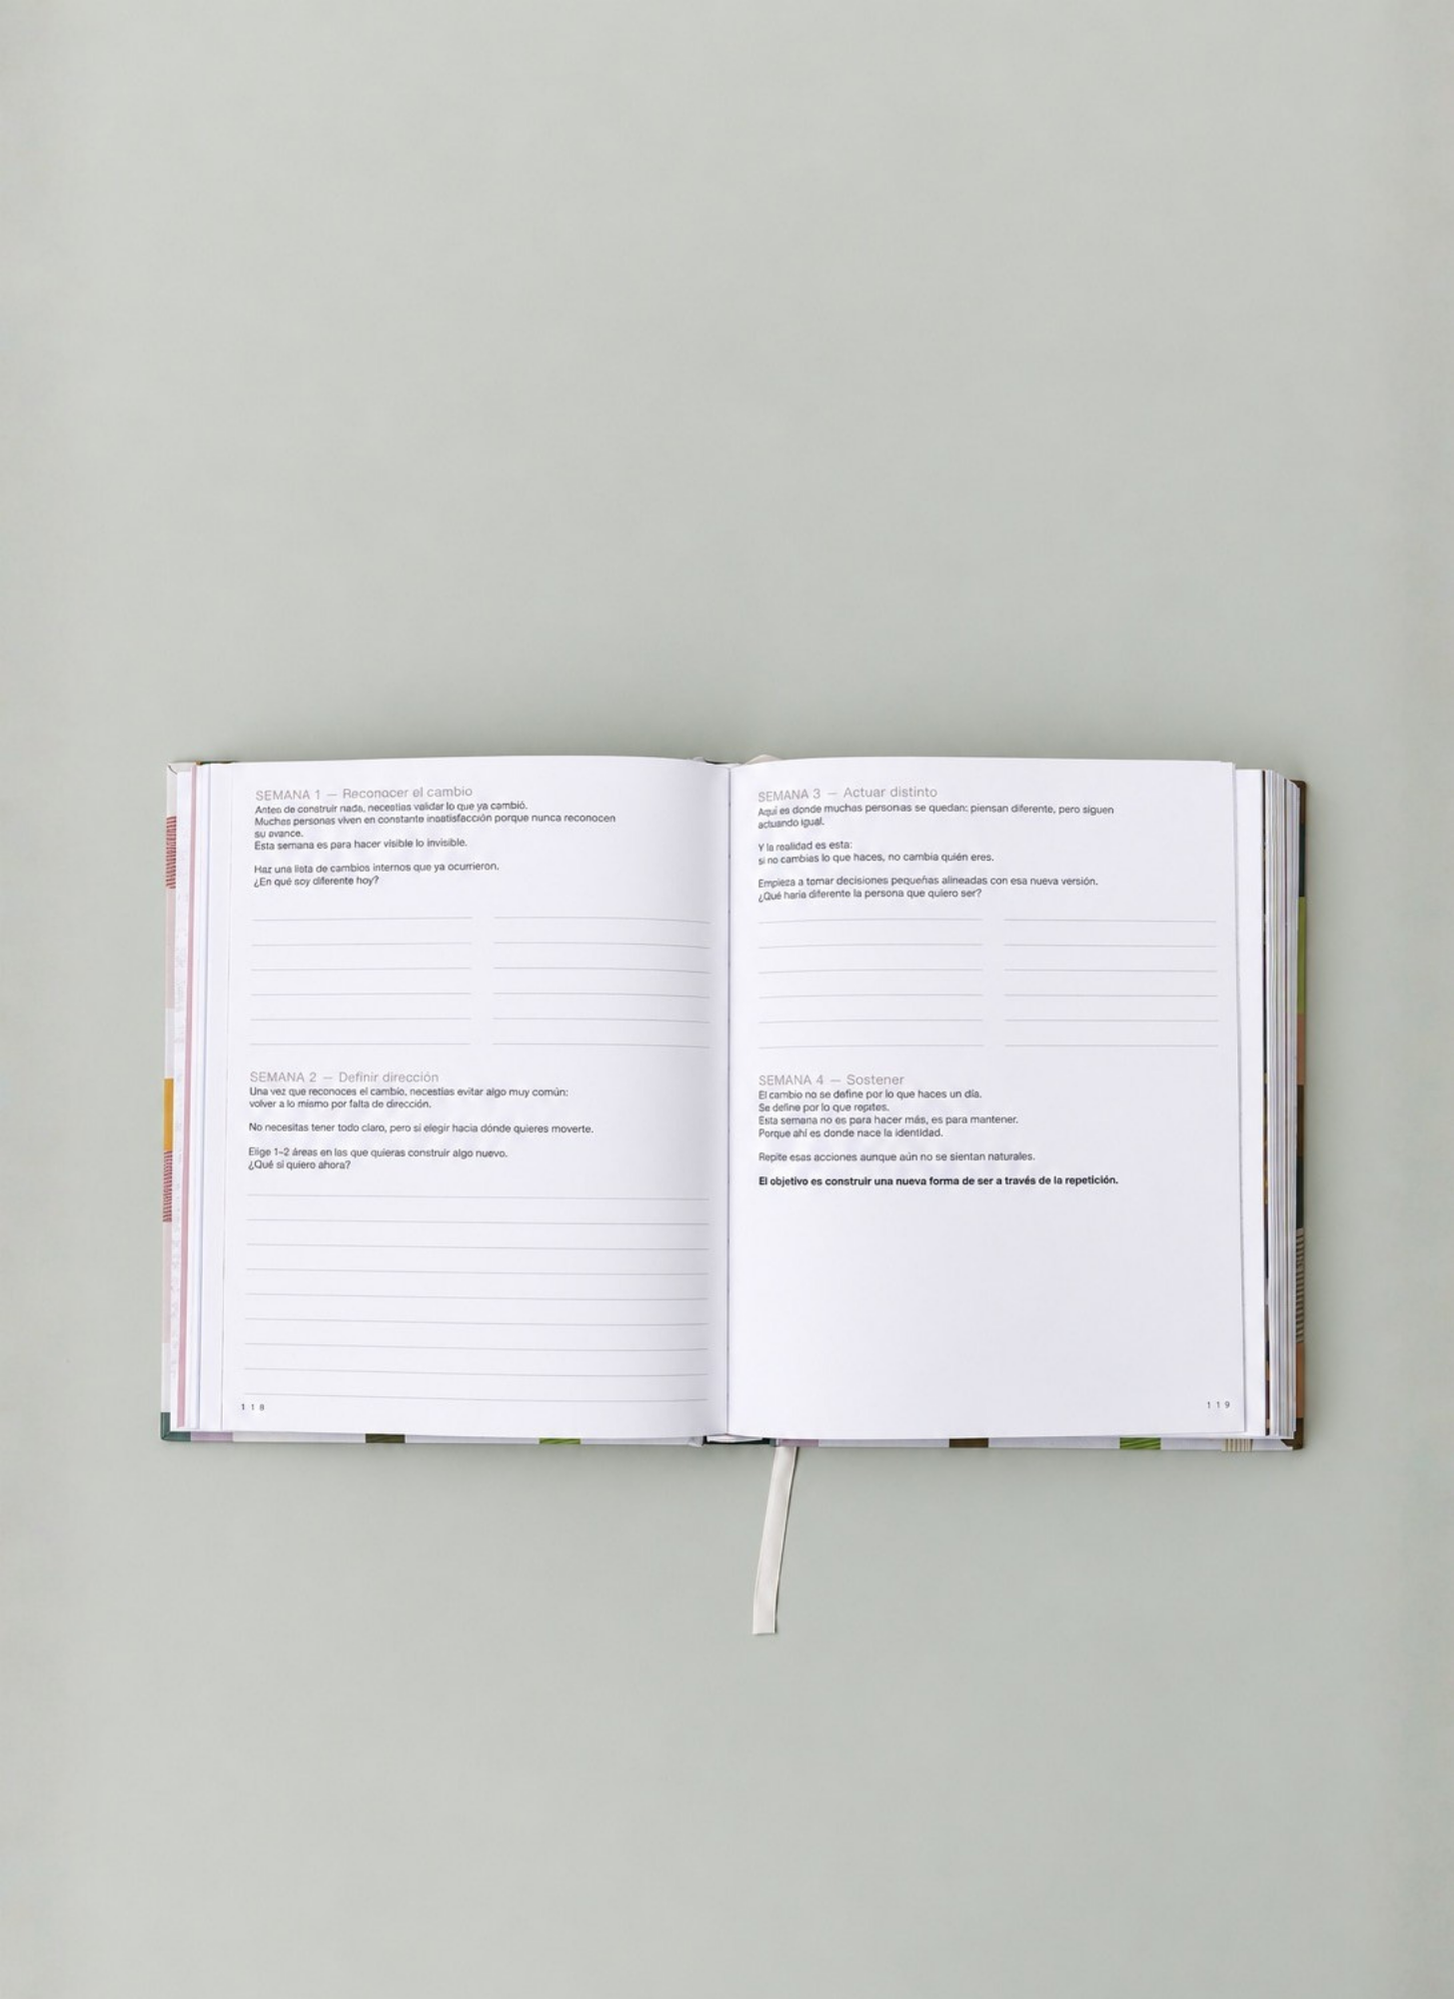 SEMANA 1 — Reconocer el cambio
Antes de construir nada, necesitas validar lo que ya cambió.
Muchas personas viven en constante insatisfacción porque nunca reconocen
su avance.
Esta semana es para hacer visible lo invisible.
Haz una lista de cambios internos que ya ocurrieron.
¿En qué soy diferente hoy?
SEMANA 2 — Definir dirección
Una vez que reconoces el cambio, necesitas evitar algo muy común:
volver a lo mismo por falta de dirección.
No necesitas tener todo claro, pero sí elegir hacia dónde quieres moverte.
Elige 1–2 áreas en las que quieras construir algo nuevo.
¿Qué sí quiero ahora?
118
SEMANA 3 — Actuar distinto
Aquí es donde muchas personas se quedan: piensan diferente, pero siguen
actuando igual.
Y la realidad es esta:
si no cambias lo que haces, no cambia quién eres.
Empieza a tomar decisiones pequeñas alineadas con esa nueva versión.
¿Qué haría diferente la persona que quiero ser?
SEMANA 4 — Sostener
El cambio no se define por lo que haces un día.
Se define por lo que repites.
Esta semana no es para hacer más, es para mantener.
Porque ahí es donde nace la identidad.
Repite esas acciones aunque aún no se sientan naturales.
El objetivo es construir una nueva forma de ser a través de la repetición.
119